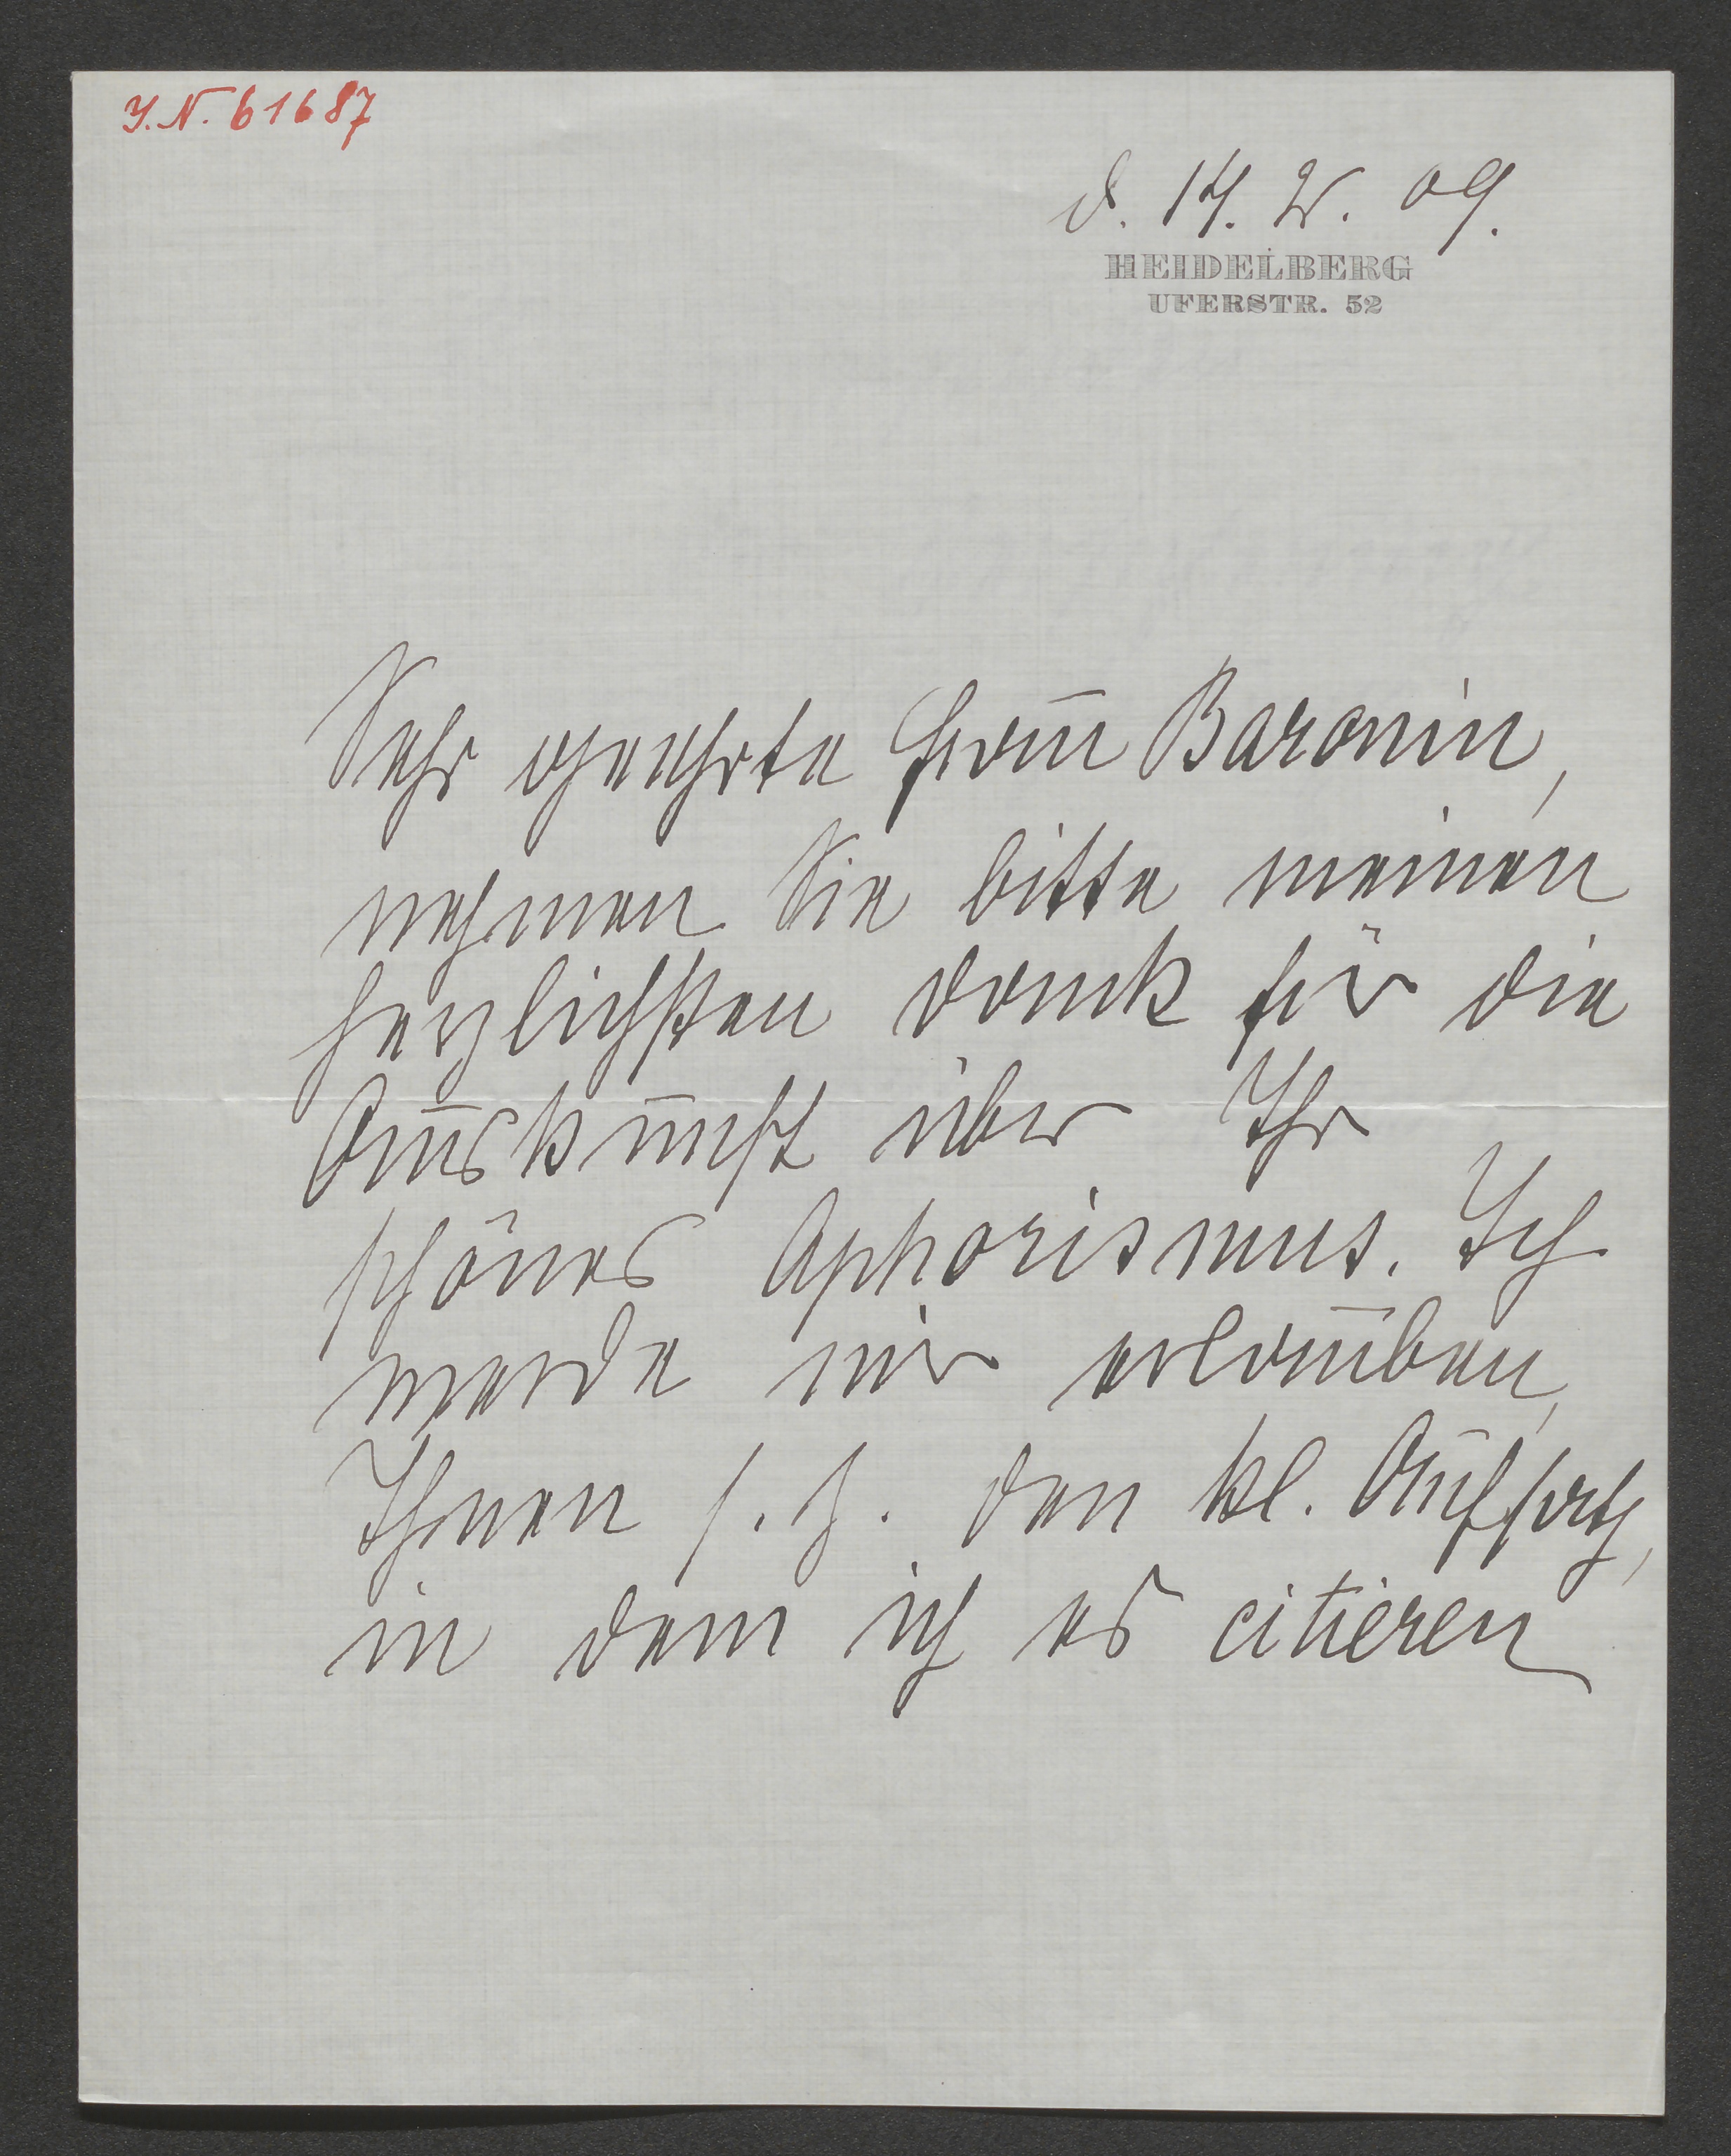 I.N. 61687
d. 14. 2. 09.
HEIDELBERG
UFERSTR. 52
Sehr geehrte Frau Baronin,
nehmen Sie bitte meinen
herzlichsten Dank für die
Auskunft über Ihr
schönes Aphorismus. Ich
werde mir erlauben,
Ihnen s. Z. den kl. Aufsatz,
in dem ich es citieren